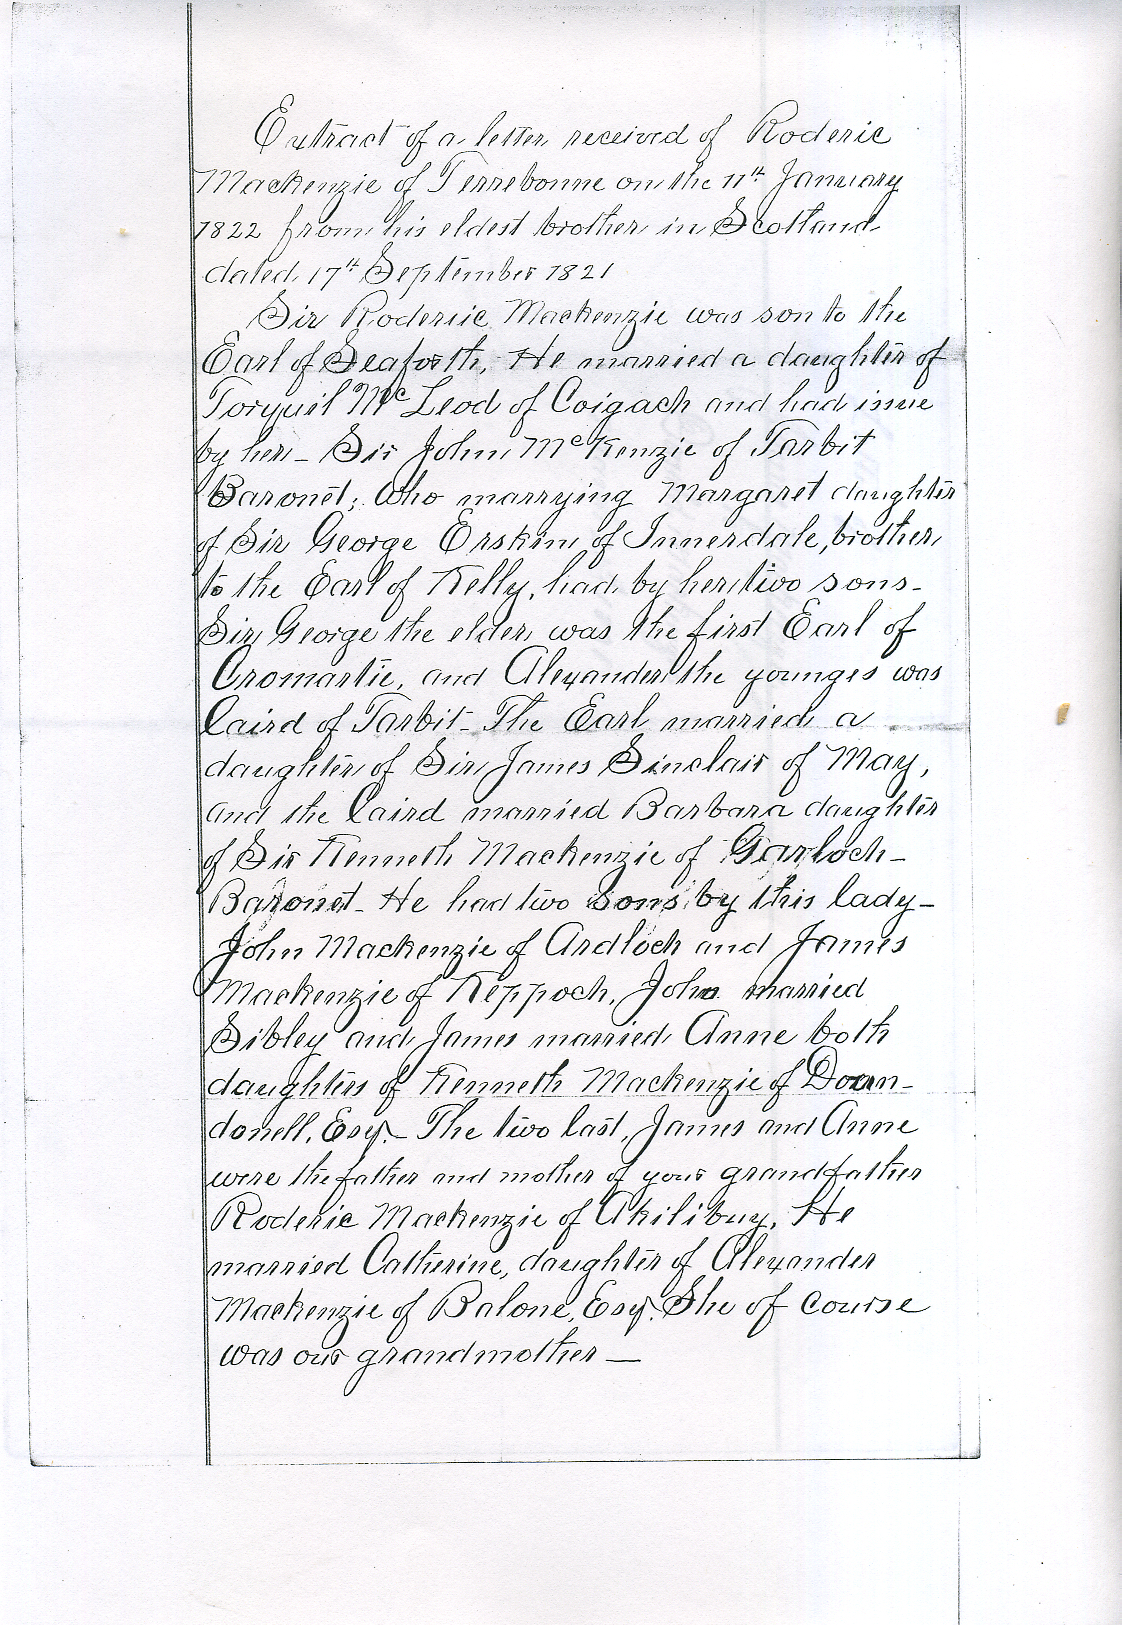 Extract of a letter received of Roderic
Mackenzie of Terrebonne on the 11th January
1822 from his eldest brother in Scotland
dated 17th September 1821
Sir Roderic Mackenzie was son to the
Earl of Seaforth, He married a daughter of
Torquil McLeod of Coigach and had issue
by her - Sir John McKenzie of Tarbit
Baronet; who marrying Margaret daughter
of Sir George Erskine of Innerdale, brother
to the Earl of Kelly, had by her two sons -
Sir George the elder was the first Earl of
Cromartie, and Alexander the younges was
Laird of Tarbit - The Earl married a
daughter of Sir James Sinclair of May,
and the Laird married Barbara daughter
of Sir Kenneth Mackenzie of Garloch -
Baronet - He had two sons by this lady -
John Mackenzie of Ardloch and James
Mackenzie of Keppoch, John married
Sibley and James married Anne both
daughters of Kenneth Mackenzie of Doun-
donell, Esq. - The two last, James and Anne
were the father and mother of your grandfather
Roderic Mackenzie of Akilibuy. He
married Catherine, daughter of Alexander
Mackenzie of Balone, Esq. She of course
was our grandmother —